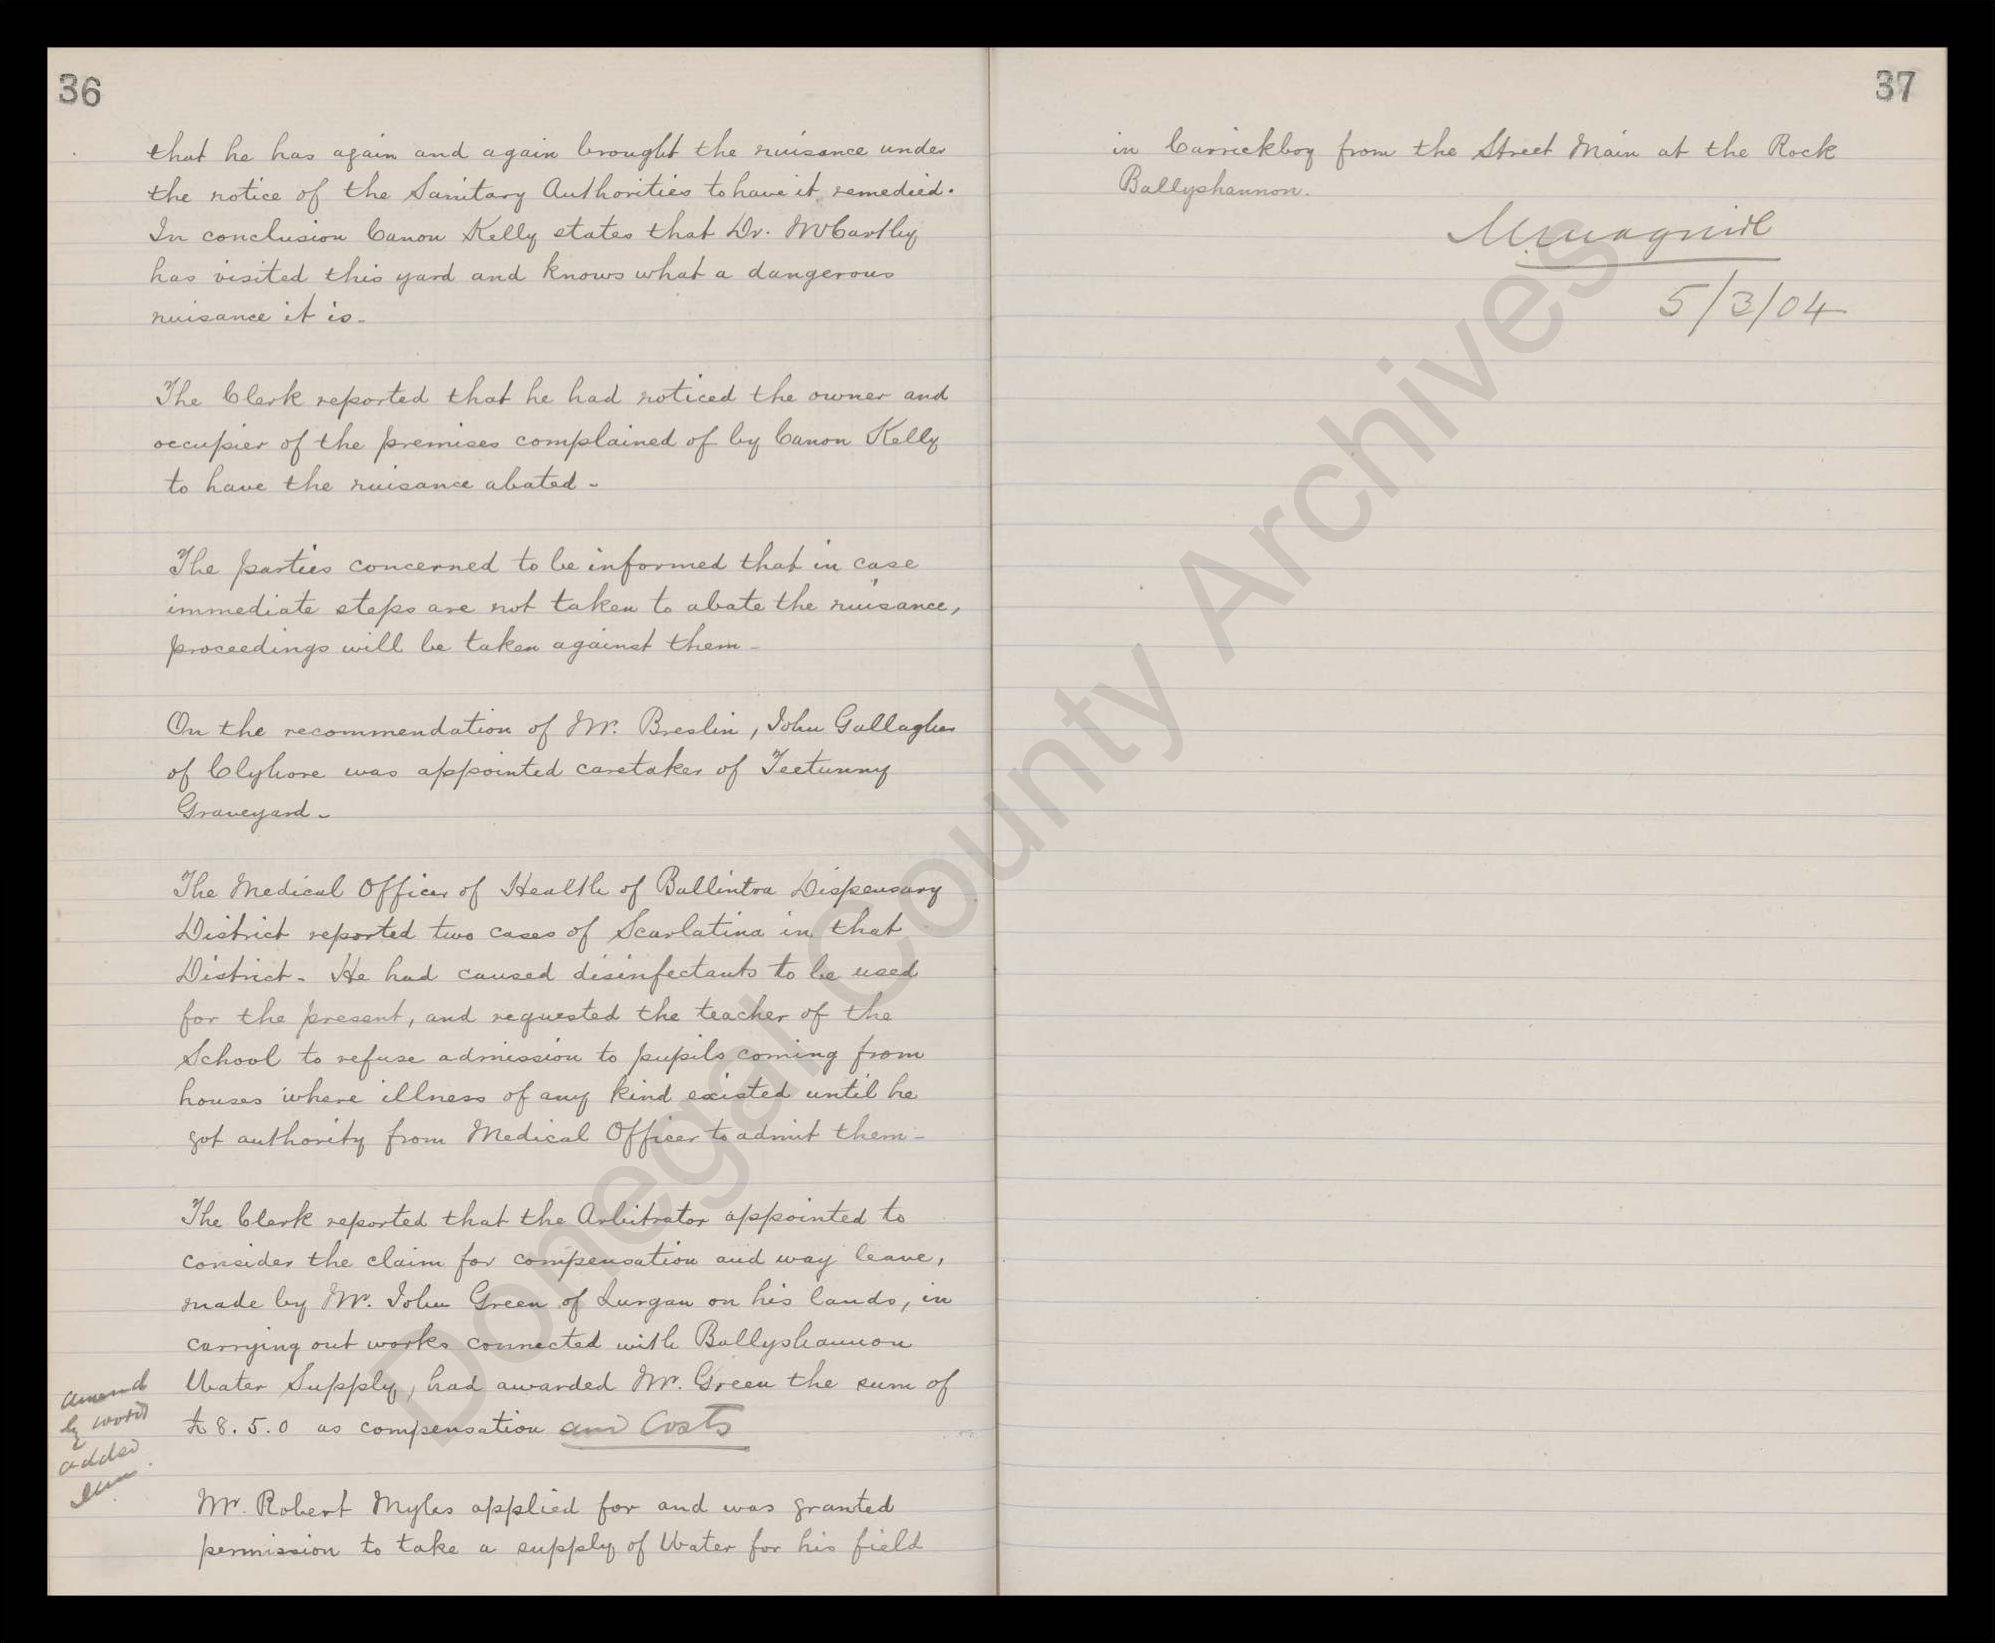 36
that he has again and again brought the nuisance under
the notice of the Sanitary Authorities to have it remedied.
In conclusion Canon Kelly states that Dr. McCarthy
has visited this yard and knows what a dangerous
nuisance it is-
The Clerk reported that he had noticed the owner and
occupier of the premises complained of by Canon Kelly
to have the nuisance abated-
The parties concerned to be informed that in case
immediate steps are not taken to abate the nuisance,
proceedings will be taken against them-
On the recommendation of Mr. Breslin, John Gallagher
of Clyhore was appointed caretaker of Teetunny
Graveyard-
The Medical Officer of Health of Ballintra Dispensary
District reported two cases of Scarlatina in that
District- He had caused disinfectants to be used
for the present, and requested the teacher of the
School to refuse admission to pupils coming from
houses where illness of any kind existed until he
got authority from Medical Officer to admit them-
The Clerk reported that the Arbitrator appointed to
consider the claim for compensation and way leave,
made by Mr. John Green of Lurgan on his lands, in
carrying out works connected with Ballyshannon
Water Supply, had awarded Mr. Green the sum of
£8.5.0 as compensation and Costs
amend
by word
added
Mr. Robert Myles applied for and was granted
permission to take a supply of Water for his field
37
in Carrickboy from the Street Main at the Rock
Ballyshannon.
5/3/04
Donegal County Archives